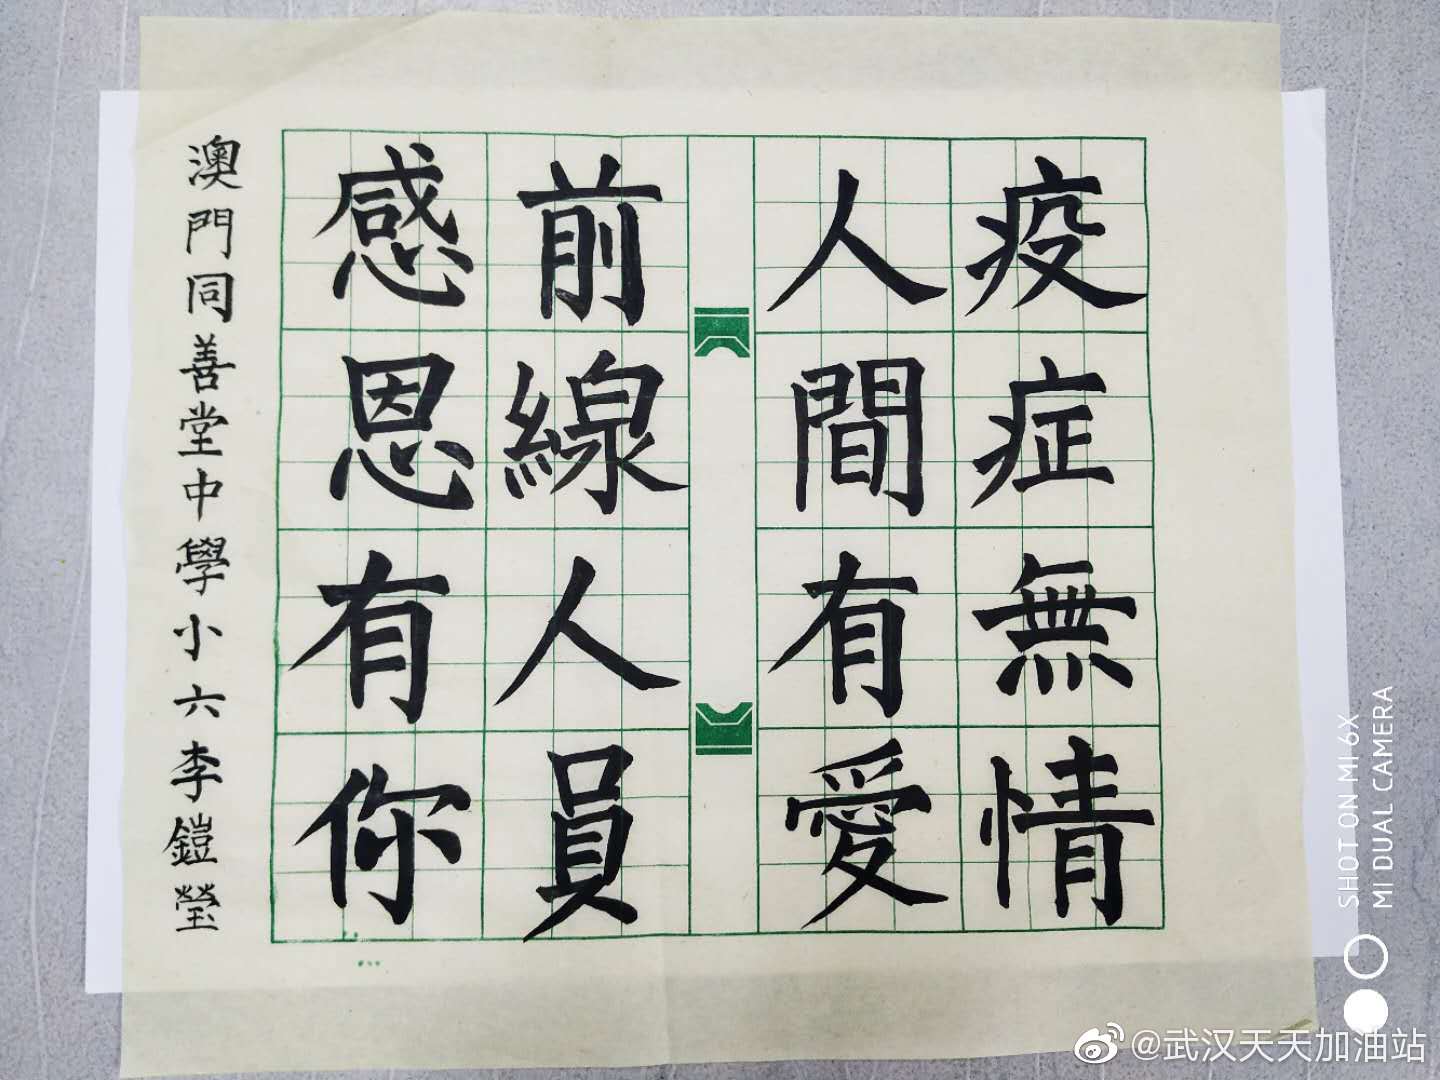 疫症無情
人間有愛
前線人員
感恩有你
澳門同善堂中學小六李鎧瑩
SHOT ON MI 6X
MI DUAL CAMERA
@武汉天天加油站